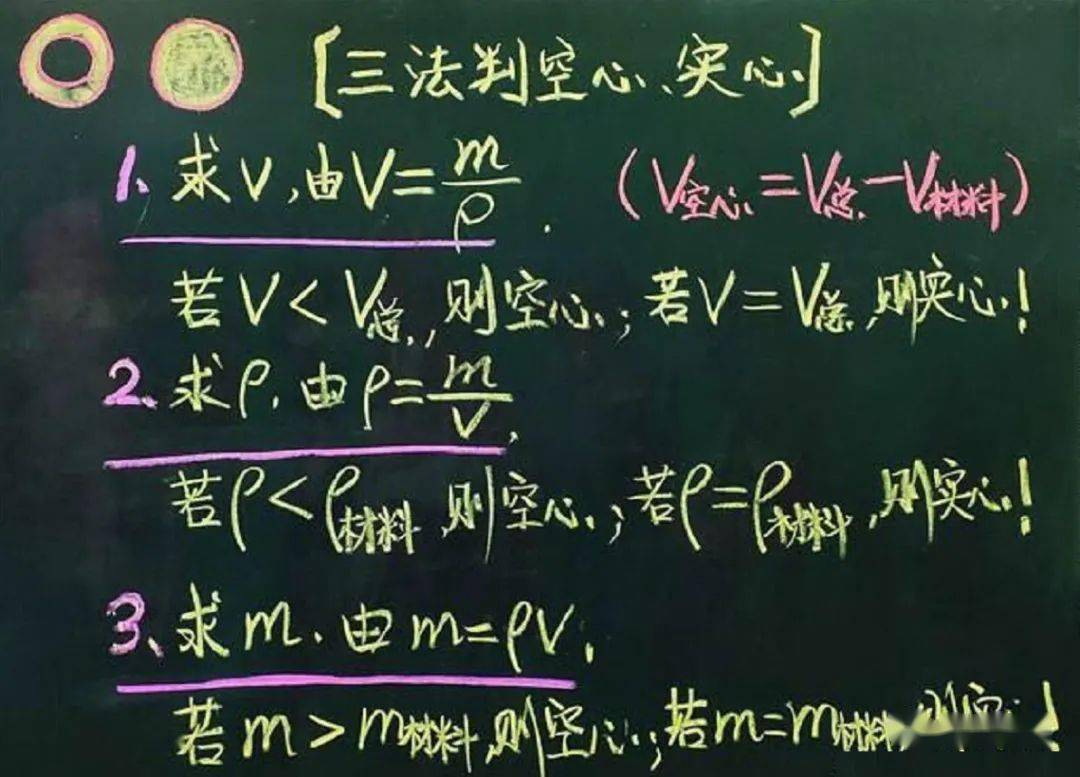 [三法判空心、实心]
1、求V,由V=m/ρ. (V空心=V总-V材料)
若V<V总,则空心;若V=V总,则实心!
2、求ρ.由ρ=m/V,
若ρ<ρ材料,则空心;若ρ=ρ材料,则实心!
3、求m.由m=ρV,
若m>m材料,则空心;若m=m材料,则实!